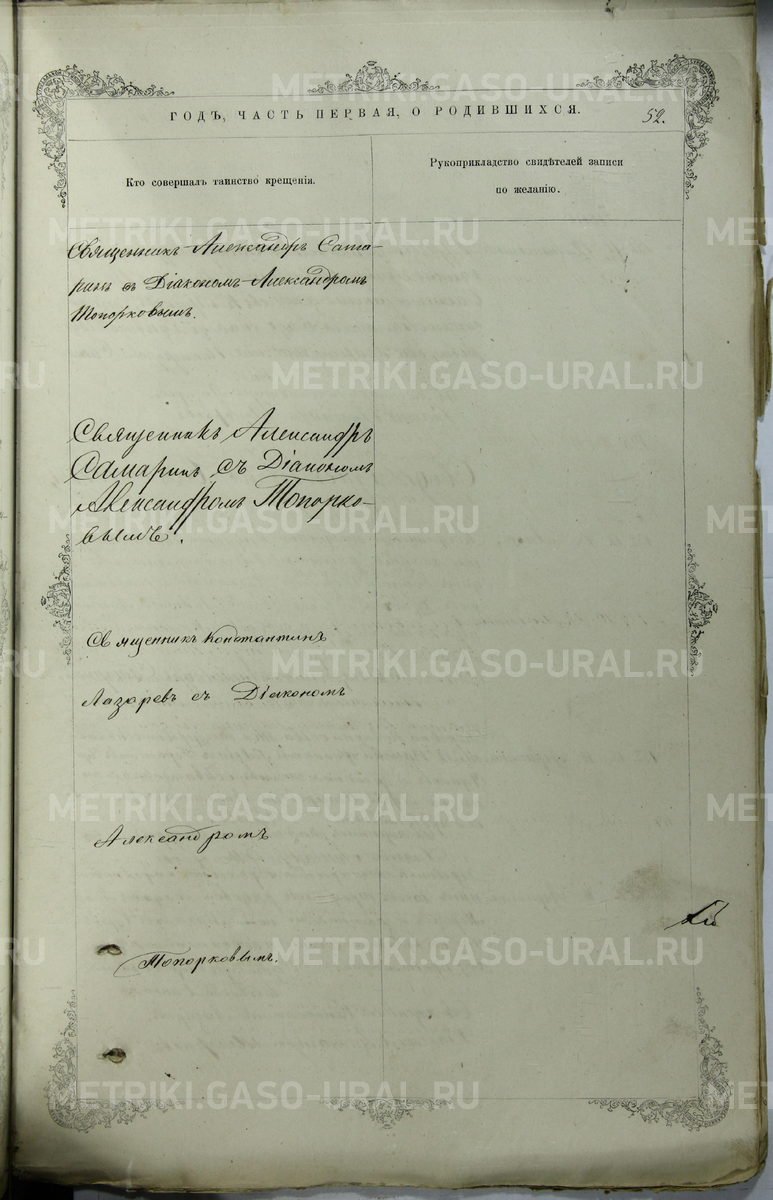 ГОДЪ, ЧАСТЬ ПЕРВАЯ, О РОДИВШИХСЯ.
52.
Кто совершалъ таинство крещенія.
Рукоприкладство свидѣтелей записи
по желанію.
Священникъ Александръ Сама-
ринъ съ Діакономъ Александромъ
Топорковымъ.
Священникъ Александръ
Самаринъ съ Діакономъ
Александромъ Топорко-
вымъ.
Священникъ Константинъ
Лазаревъ съ Діакономъ
Александромъ
Топорковымъ.
METRIKI.GASO-URAL.RU